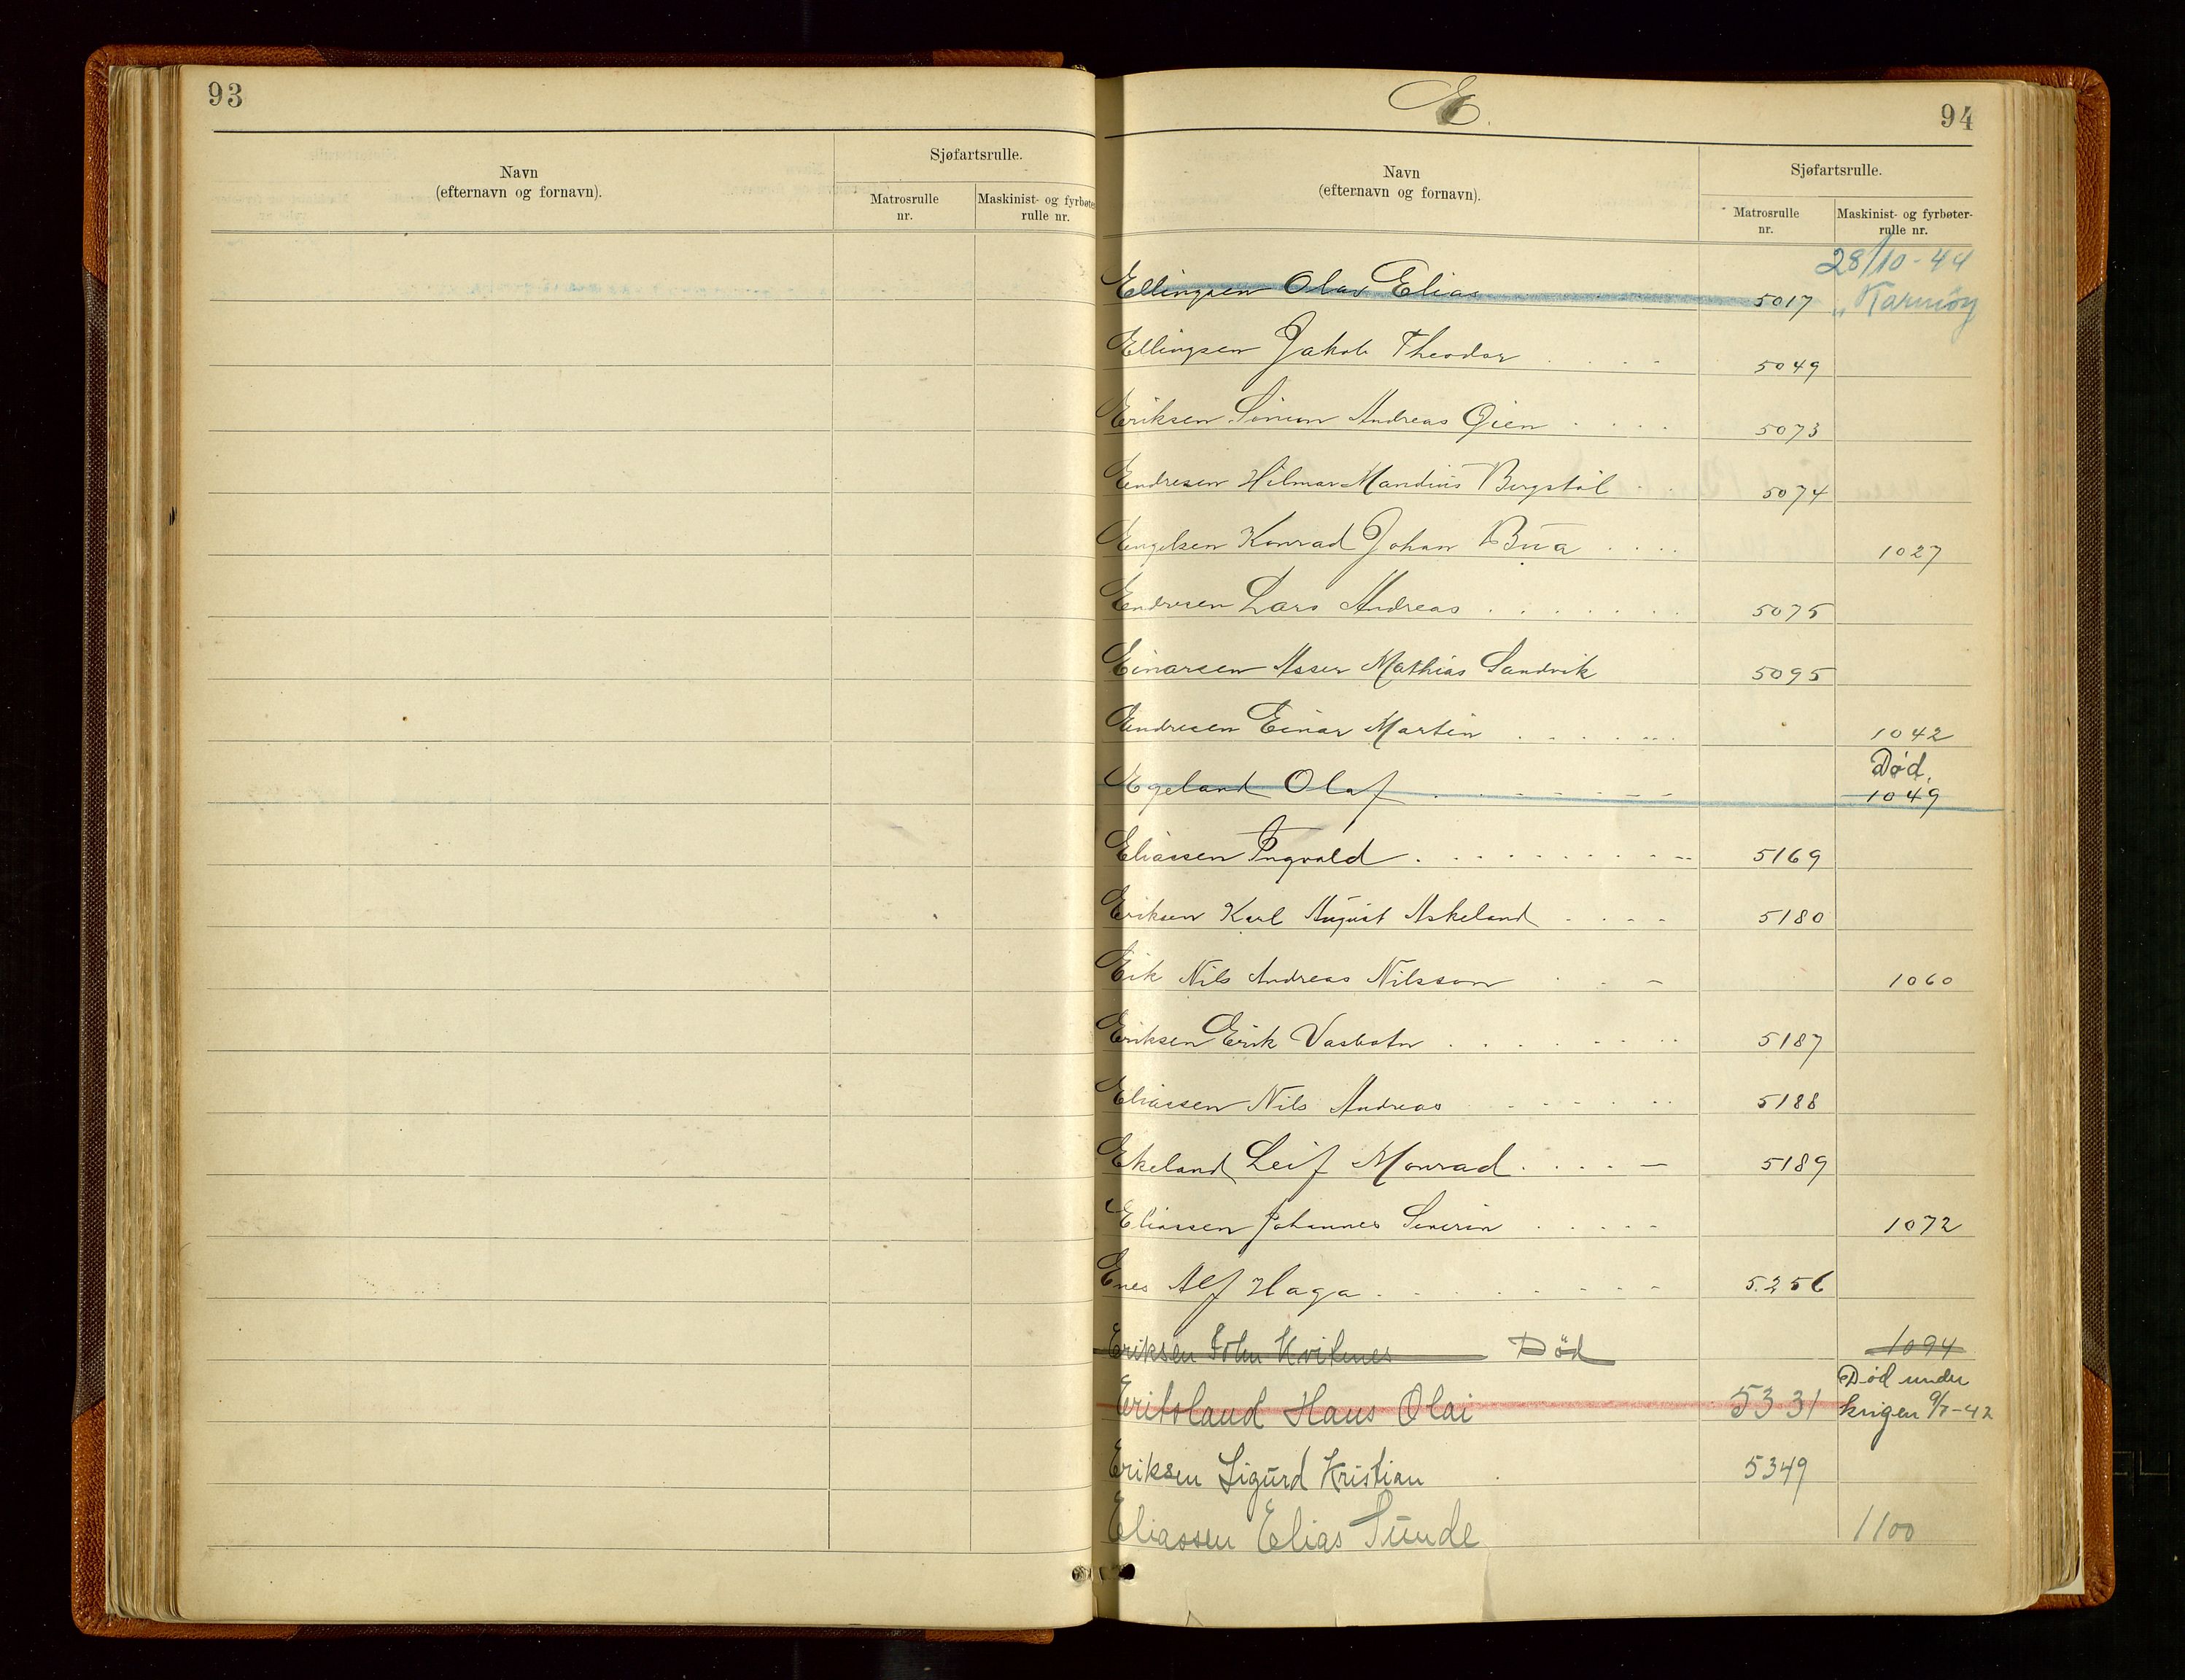 93
Navn
(efternavn og fornavn).
Sjøfartsrulle.
Matrosrulle
nr.
Maskinist- og fyrbøter
rulle nr.
E.
94
Navn
(efternavn og fornavn).
Sjøfartsrulle.
Matrosrulle
nr.
Maskinist- og fyrbøter-
rulle nr.
28/10-44
Ellingsen Olav Elias 5017 "Karmöy
Ellingsen Jakob Theodor . . . 5049
Eriksen Simon Andreas Öien . . . . 5073
Endresen Hilmar Mandius Bergstöl . . 5074
Engelsen Konrad Johan Bua . . . . 1027
Endresen Lars Andreas . . . . . . . 5075
Einarsen Asser Mathias Sandvik 5095
Endresen Einar Martin . . . . . . . 1042
Død.
Egeland Olaf . . . . . . . 1049
Eliassen Ingvald . . . . . . . . . . 5169
Eriksen Karl August Askeland . . . . 5180
Eik Nils Andreas Nilsson . . - 1060
Eriksen Erik Vasbotn . . . . . . . 5187
Eliassen Nils Andreas . . . . . . 5188
Ekeland Leif Monrad . . . . - 5189
Eliassen Johannes Severin . . . . . 1072
Enes Alf Haga . . . . . . . . 5256
Eriksen John Kvitnes Död 1094
Død under
Eritsland Hans Olai 5331 krigen 9/7-42
Eriksen Sigurd Kristian . 5349
Eliassen Elias Sunde 1100